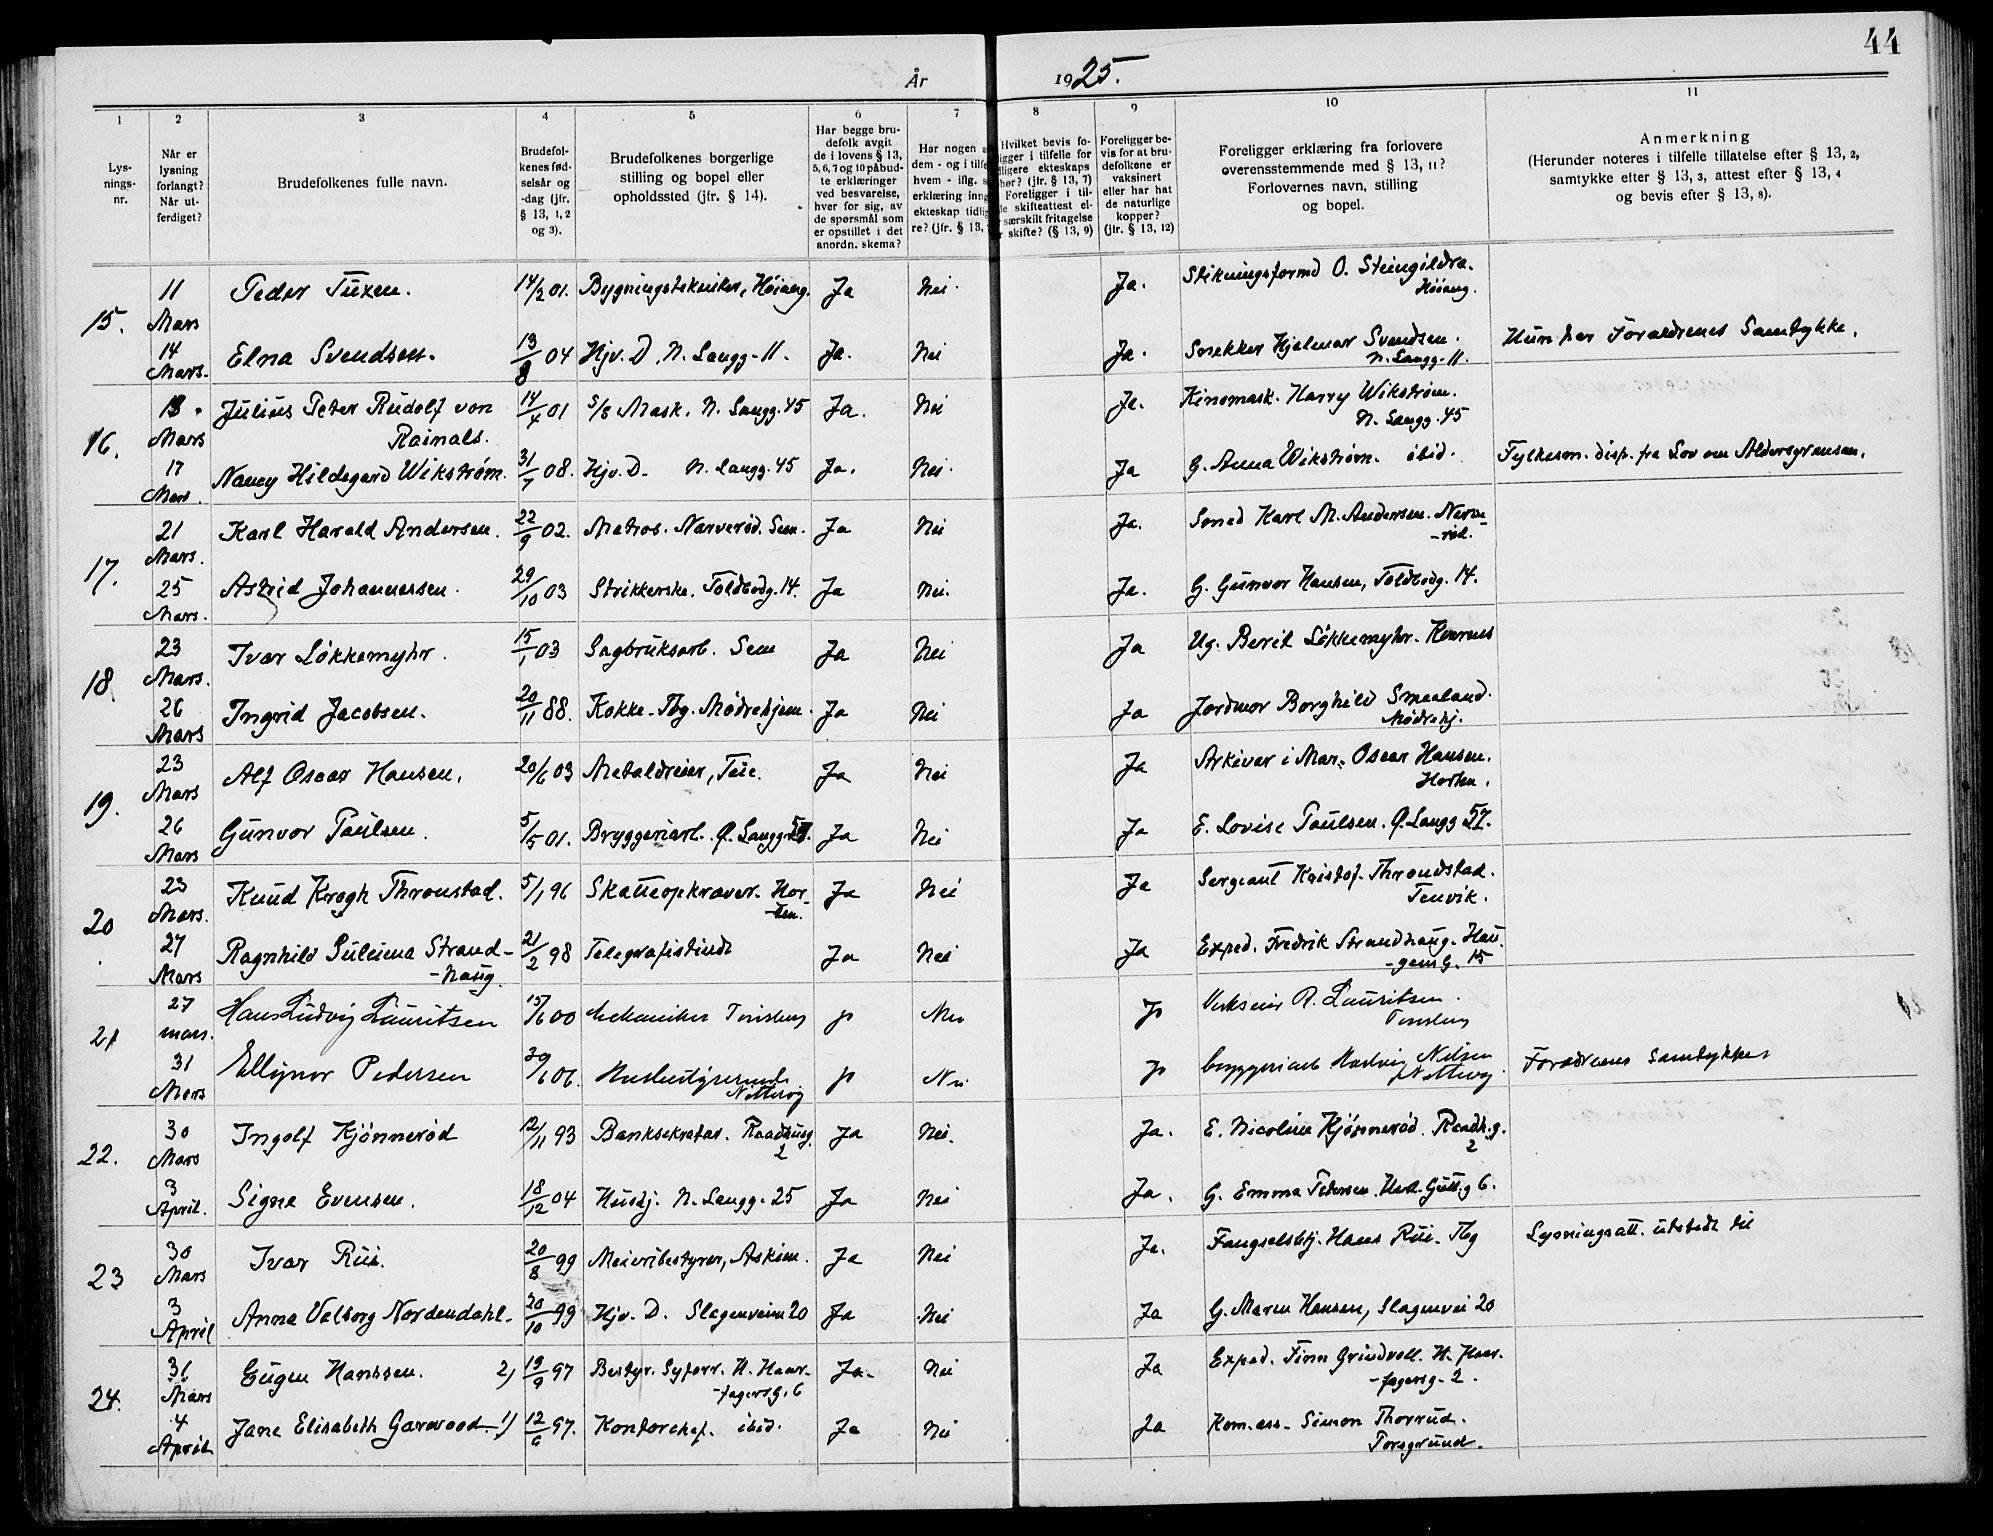 44
År 1925.
1 2 3 4 5 6 7 8 9 10 11
Lys-
nings-
nr.
Når er
lysning
forlangt?
Når ut-
ferdiget?
Brudefolkenes fulle navn.
Brudefol-
kenes fød-
selsår og
-dag (jfr.
§ 13, 1, 2
og 3).
Brudefolkenes borgerlige
stilling og bopel eller
opholdssted (jfr. § 14).
Har begge bru-
defolk avgit
de i lovens § 13,
5, 6, 7 og 10 påbud-
te erklæringer
ved besvarelse,
hver for sig, av
de spørsmål som
er opstillet i det
anordn. skema?
Har nogen a
dem - og i tilfe
hvem - iflg. s
erklæring inng
ekteskap tidlig
re? (jfr. § 13,
Hvilket bevis fo-
igger i tilfelle for
dligere ekteskaps
hør? (jfr. § 13, 7)
Foreligger i til-
le skifteattest el-
særskilt fritagelse
r skifte? (§ 13, 9)
Foreligger be-
vis for at bru-
defolkene er
vaksinert
eller har hat
de naturlige
kopper?
(jfr. § 13, 12)
Foreligger erklæring fra forlovere
overensstemmende med § 13, 11?
Forlovernes navn, stilling
og bopel.
Anmerkning
(Herunder noteres i tilfelle tillatelse efter § 13, 2,
samtykke efter § 13, 3, attest efter § 13, 4
og bevis efter § 13, 8).
15. 11 Mars Peder Tuxen. 14/2 01. Bygningstekniker, Høiang. Ja Nei. Ja. Stikningsformd O. Steingildra. Høiang.
14 Mars. Elna Svendsen. 13/8 04 Hjv. D. N. Langg. 11. Ja. Nei Ja. Snekker Hjalmar Svendsen. N. Langg. 11. Hun har Foraldrenes Samtykke.
16. 13 Mars Julius Peter Rudolf von Raimals. 14/4 01 S/S Mask. N. Langg. 45 Ja. Nei Ja. Kinomask. Harry Wikstrøm. N. Langg. 45
17 Mars Nancy Hildegard Wikstrøm. 31/7 08. Hjv. D. N. Langg. 45 Ja. Nei. Ja G. Anna Wikstrøm. ibid. Fylkesm. disp. fra Lov om Aldersgrensen.
17. 21 Mars. Karl Harald Andersen. 22/9 02. Matros. Narverød. Sem. Ja Nei Ja. Smed Karl M. Andersen. Narve-
-rød.
25 Mars. Astrid Johannessen. 29/10 03 Strikkerske. Toldbodg. 14. Ja Nei. Ja. G. Gunvor Hansen, Toldbodg. 14.
18. 23 Mars. Ivar Løkkemyhr. 15/1 03 Sagbruksarb. Sem Ja Nei Ja Ug. Berit Løkkemyhr.
26 Mars Ingrid Jacobsen. 20/11 88. Kokke. Tbg. Mødrehjem. Ja Nei Ja Jordmor Borghild Smaaland. Mødrehj.
19. 23 Mars Alf Oscar Hansen. 20/6 03 Metaldreier, Teie. Ja Nei Ja Arkivar i Mar. Oscar Hansen. Horten.
26 Mars Gunvor Paulsen. 5/5 01. Bryggeriarb. Ø. Langg. 57. Ja Nei Ja E. Lovise Paulsen. Ø. Langg 57.
20 23 Mars. Knud Krogh Thronstad. 5/1 96 Skatteopkræver. Hor-
-ten. Ja Nei Ja Sergeant Kristof. Throndstad. Tenvik.
27 Mars Ragnhild Sulema Strand-
-haug. 21/2 98 Telegrafistinde Ja Nei Ja Exped. Fredrik Strandhaug. Hau-
-gens G. 15
21 27 mars. Hans Ludvig Lauritsen 15/6 00 Mekaniker Tønsberg Ja Nei Ja Verkseier R. Lauritsen. Tønsberg
31 Mars Ellignor Pedersen 30/6 06. Nøtterøy Ja Nei Ja bryggeriarb Nilsen Nøtterøy. Foraldrenes Samtykke
22. 30 Mars Ingolf Kjønnerød 12/11 93 Banksekretær. Raadhusg. 2 Ja Nei. Ja. E. Nicoline Kjønnerød. Raadh.g. 2
3 April. Signe Evensen. 18/12 04 Hushj. N. Langg. 25 Ja Nei Ja. G. Emma Pedersen. 6.
23 30 Mars Ivar Rui. 20/8 99 Meieribestyrer, Askim. Ja Nei Ja. Fangselsbtj. Hans Rui. Tbg Lysningsatt. utstedt til
3 April Anna Valborg Nordendahl. 20/10 99 Hjv. D. Slagenveien 20 Ja Nei Ja G. Maren Hansen, Slagenvei 20
24. 31 Mars Eugen Hanssen. 2) 19/9 97 Bestyr. Syforr. H. Haar-
-fagersg. 6 Ja. Nei Ja Exped. Finn Grindvoll. H. Haar-
-fagersg. 2.
4 April Jane Elisabeth Garwood. 1) 12/6 97. Kontorchef. ibid. Ja Nei Ja Kom. ass. Simon Thorrud. Porsgrund.